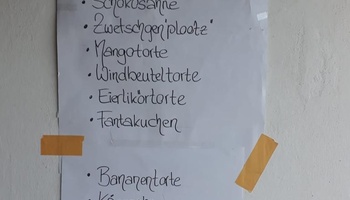 • Schokosahne
• Zwetschgen"plootz"
• Mangotorte
• Windbeuteltorte
• Eierlikörtorte
• Fantakuchen
• Bananentorte